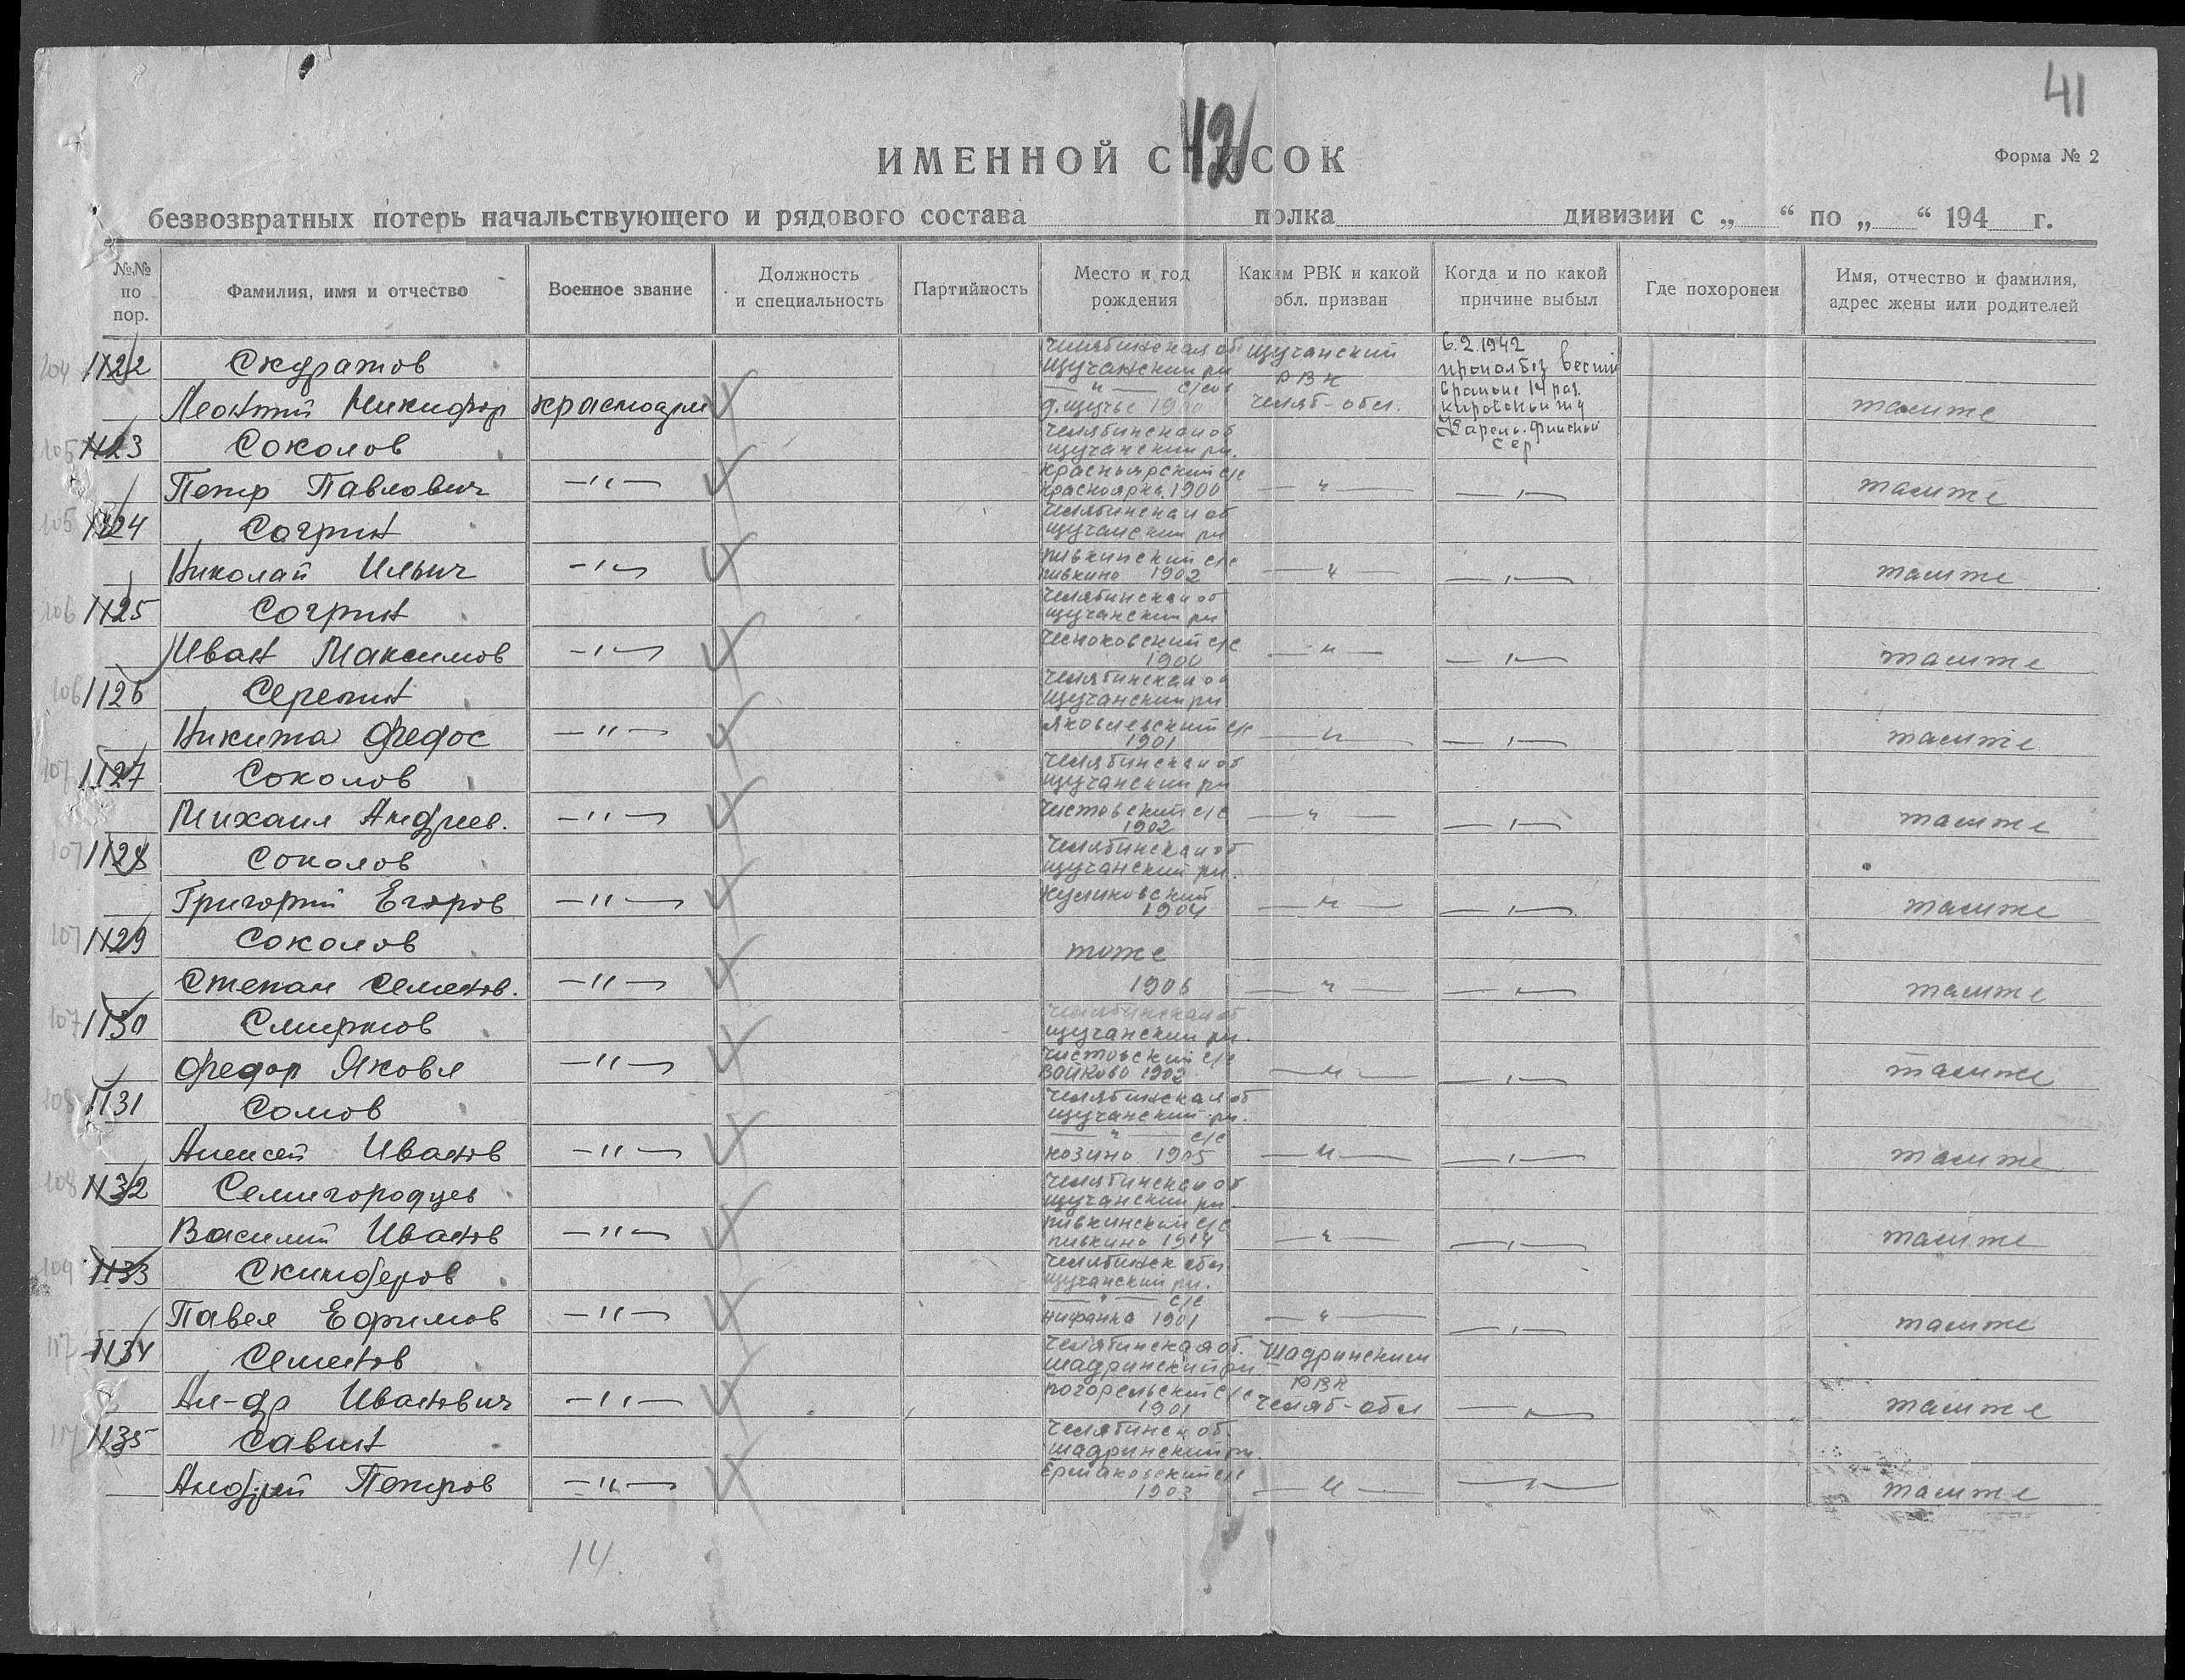 41
42
ИМЕННОЙ СПИСОК
Форма № 2
безвозвратных потерь начальствующего и рядового состава полка дивизии с „ “ по „ “ 194 г.
№№ по пор.
Фамилия, имя и отчество
Военное звание
Должность и специальность
Партийность
Место и год рождения
Каким РВК и какой обл. призван
Когда и по какой причине выбыл
Где похоронен
Имя, отчество и фамилия, адрес жены или родителей
104 1122 Скуратов Челябинская об Щучанский 6.2.1942
Щучанский рн РВК пропал без вести
—"— с/сов
Леонтий Никифор красноарм д. щучье 1900 Челяб-обл. тамже
Карело-Финской
сср
105 1123 Соколов Челябинской об
щучанский рн.
Красноярский с/с
Петр Павлович —"— Красноярка 1900 —"— —"— тамже
105 1124 Согрин Челябинской об
щучанский рн
пивкинский с/с
Николай Ильич —"— пивкино 1902 —"— —"— тамже
106 1125 Согрин Челябинской об
щучанский рн
Чесноковский с/с
Иван Максимов —"— 1900 —"— —"— тамже
106 1126 Серепин Челябинской об
щучанский рн
Яковлевский с/с
Никита Федос —"— 1901 —"— —"— тамже
107 1127 Соколов Челябинской об
щучанский рн
Чистовский с/с
Михаил Андреев. —"— 1902 —"— —"— тамже
107 1128 Соколов Челябинской об
щучанский рн.
Куликовский
Григорий Егоров —"— 1904 —"— —"— тамже
107 1129 Соколов тоже
Степан Семенов. —"— 1906 —"— —"— тамже
107 1130 Смирнов Челябинской об
щучанский рн.
Чистовский с/с
Федор Яковл —"— Войково 1902 —"— —"— тамже
108 1131 Сомов Челябинская об
щучанский рн.
—"— с/с
Алексей Иванов —"— козино 1905 —"— —"— тамже
108 1132 Семигородцев Челябинской об
щучанский рн.
пивкинский с/с
Василий Иванов —"— пивкино 1914 —"— —"— тамже
109 1133 Скинферов Челябинск обл
щучанский рн.
—"— с/с
Павел Ефимов —"— нифанка 1901 —"— —"— тамже
117 1134 Семенов Челябинская об. Шадринским
шадринский рн РВК
погорельский с/с
Ал-др Иванович —"— 1901 Челяб-обл —"— тамже
117 1135 Савин Челябинск об.
шадринский рн.
Ермаковский с/с
Андрей Петров —"— 1903 —"— —"— тамже
14